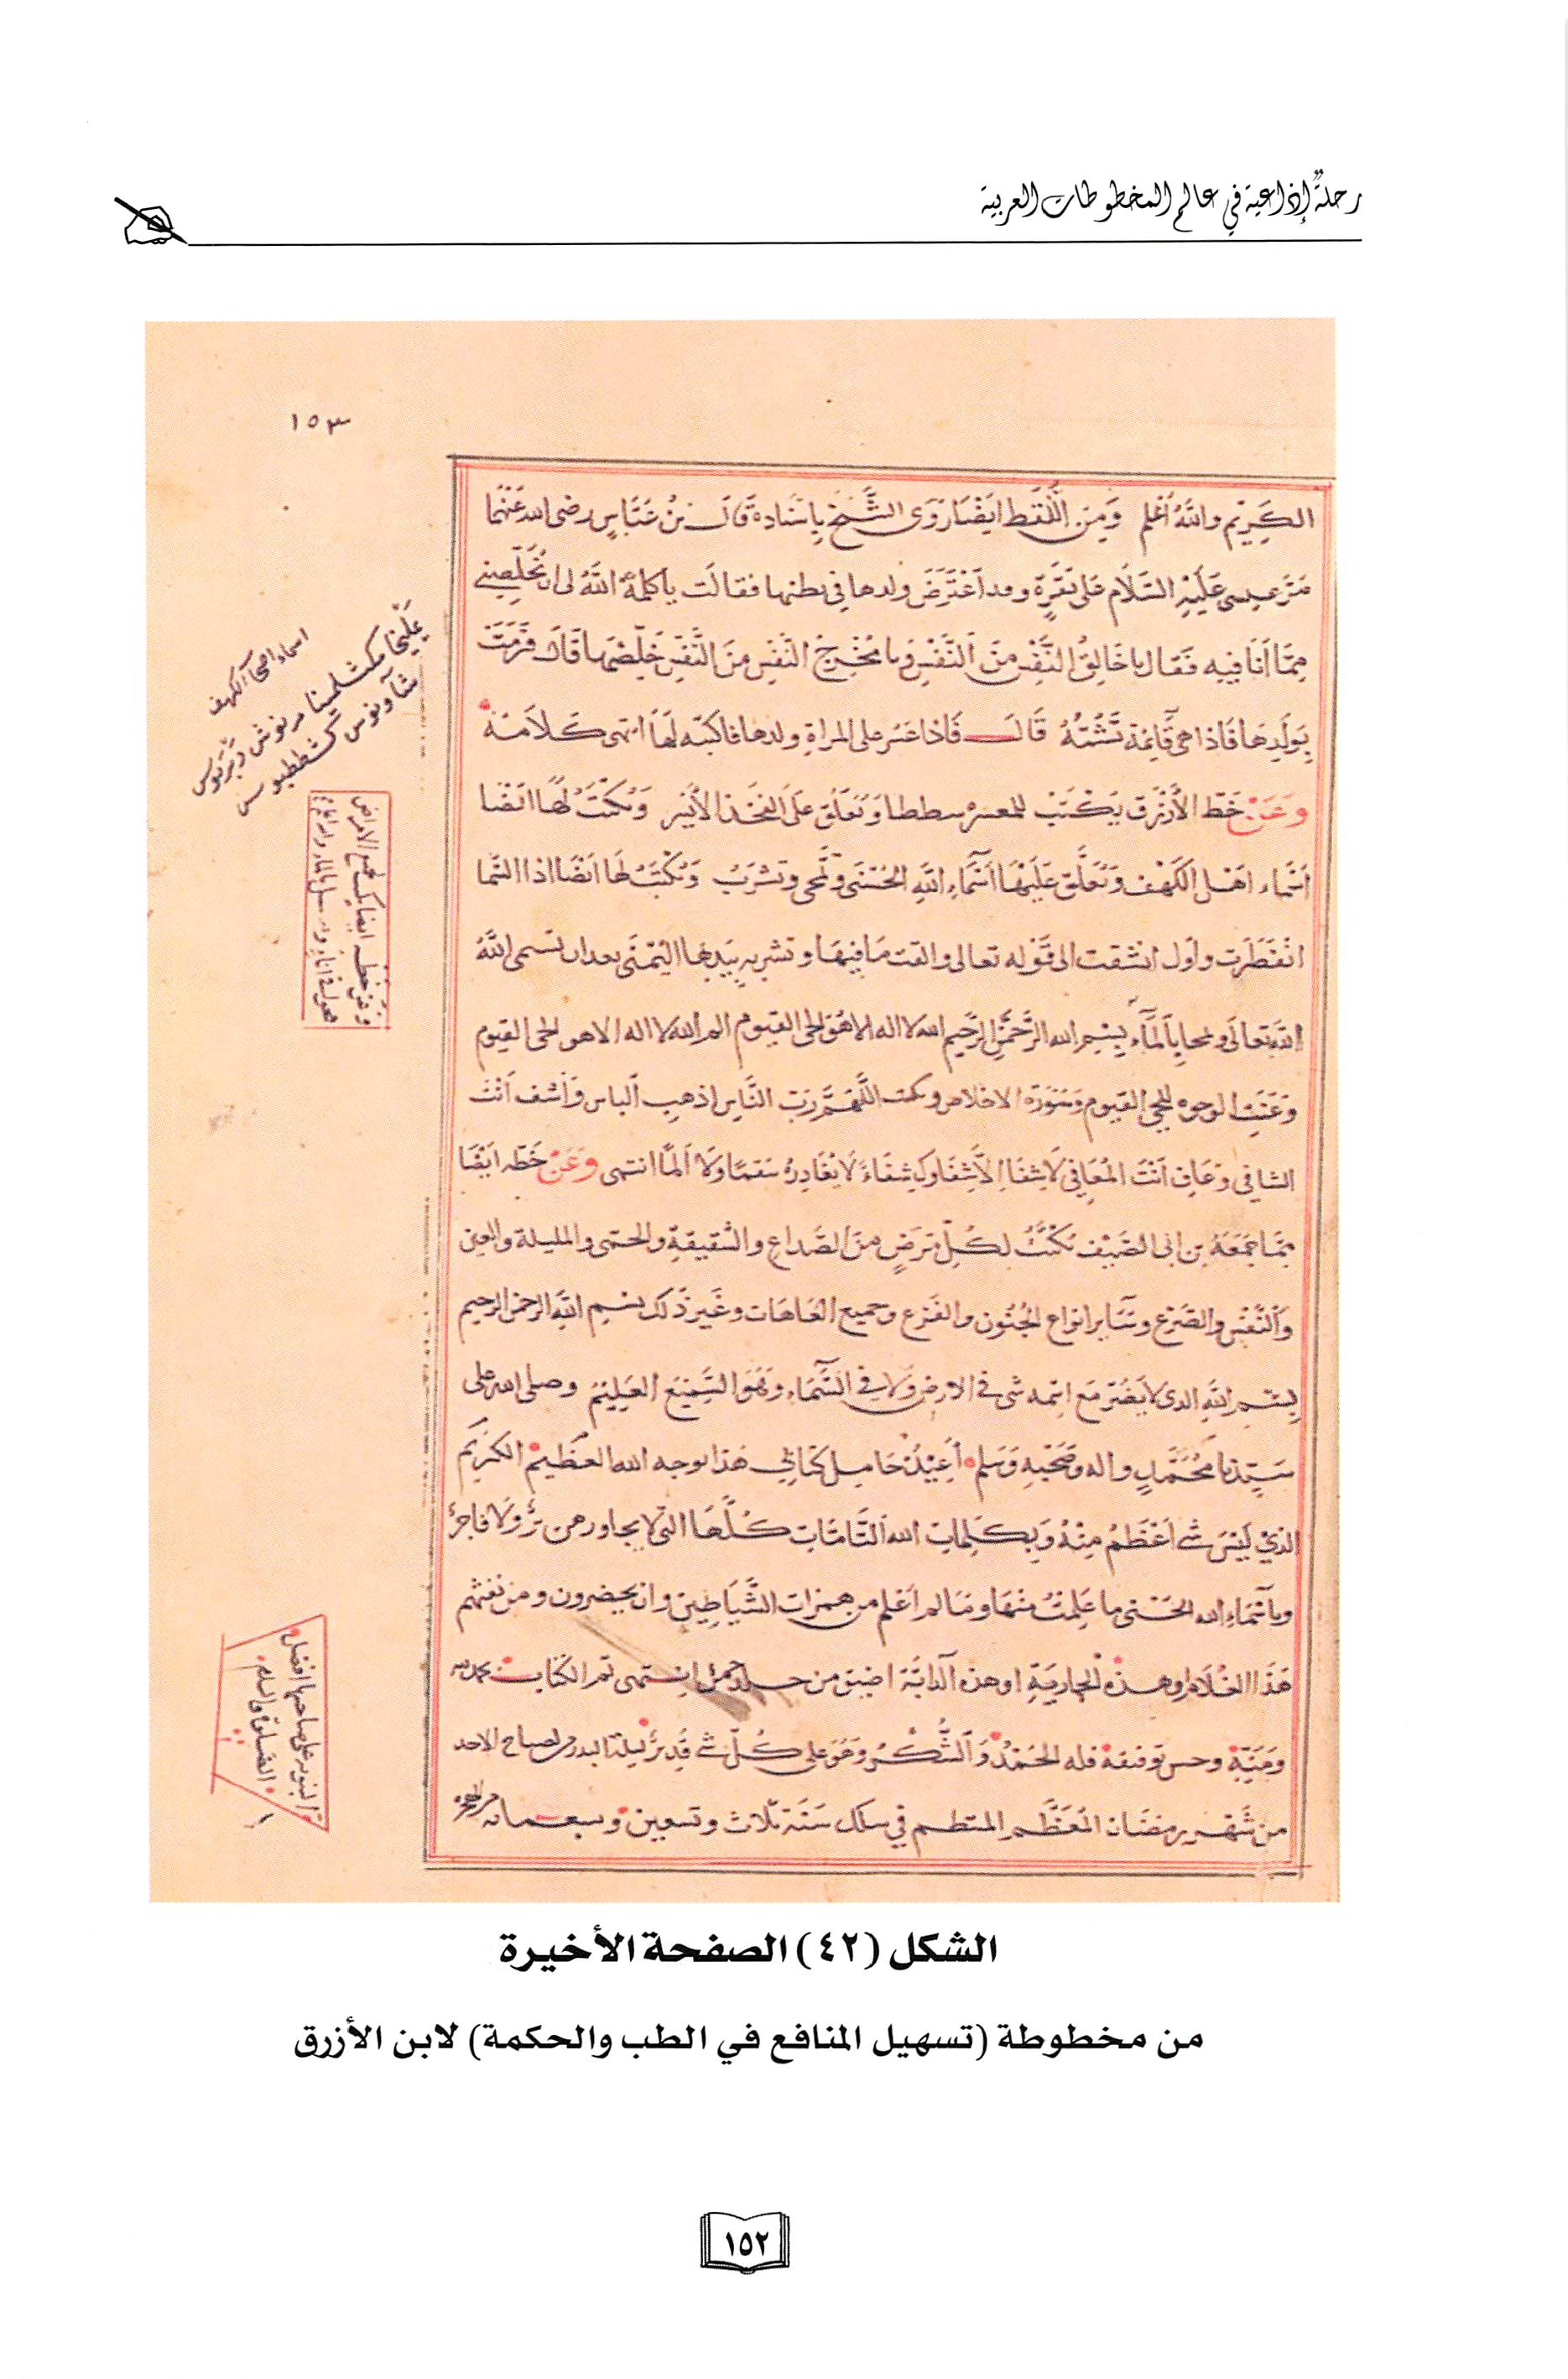 رحلةٌ إذاعية في عالم المخطوطات العربية
١٥٣
الكَرِيْم والله أعلم وَمِنَ اللَّقَط ايضًا رَوَى الشَّيخ بِاسْنَادِهِ قَالَ بنُ عَبَّاسٍ رضى الله عَنْهُمَا
مَرَّ عيسى عَلَيْهِ السَّلَام عَلى بَقَرَةٍ وقد اعْتَرَضَ ولدها فى بطنها فقالت يا كلمة الله ادع الله لى ان يُخَلِّصنى
مِمَّا أنَا فِيهِ فَقَال يا خَالِقَ النَّفْسِ منَ النَّفْسِ ويا مُخْرِجَ النَّفْسِ مِنَ النَّفْسِ خَلِّصْهَا قَالَ فَرَمَتْ
بِوَلَدِهَا فَاذا هى قَائِمَة تَشُمُّهُ قَالَ فَاذا عَسُر على المراةِ ولدها فاكتبه لَهَا انتهى كَلَامُهُ
وَعَنْ خَطّ الأزْرَق يَكْتَبْ للمعسره سططا وَتُعَلَّق عَلَى الفَخَذ الأيْسَر وَيُكْتَبُ لَهَا ايْضًا
أسْمَاء اهْل الكَهْف وَتُعَلَّق عَلَيْهَا أسْمَاءِ اللهِ الحُسْنَى وتُمحى وتشربُ وَيُكْتَبُ لَهَا ايْضًا اذا السَّما
انْفَطَرَت واول انشقت الى قَوْلِه تعالى والقت مَا فِيهَا وتشربه بِيَدِهَا اليُمْنَى بعد ان تسمى اللهُ
الله تعالى ويمحا بِالْمَآءِ بِسْمِ الله الرَّحْمَنِ الرَّحِيمِ الله لا اله الا هُوَ الحى القيوم الم الله لا اله الا هو الحى القيوم
وَعَنَتِ الوجوه للحى القيوم وسُورَة الاخلاص ويكتب اللَّهُمَّ رَبَّ النَّاسِ اذهِب الباس وَاشف أنْتَ
الشافى وَعَافِ انْتَ المُعَافى لَا شِفَا الاَّ شِفَاوكَ شِفَاءً لَا يُغَادِرُ سَقَمًا وَلَا ألَمًا انتهى وَعَنْ خَطّه ايْضًا
مِمَّا جَمَعَهُ بن ابى الضَّيْف يُكْتَبُ لِكُلِّ مَرَضٍ منَ الصُّدَاعِ والشَّقِيقَةِ والحمَّى والمليلة والعين
وَالنَّفْسِ والصَّرْعِ وَسَآيِر انواع الجُنُون والفَزَع وجميع العَاهَات وغَيْر ذَلك بِسْمِ اللهِ الرحمن الرحيم
بِسْمِ اللهِ الذى لا يَضُرُّ مَعَ اسْمِه شى فى الارضِ وَلا فِى السَّمَاءِ وَهُوَ السَّمِيعُ العَلِيمُ وصلى الله على
سَيِّدِنَا مُحَمَّدٍ واله وصَحْبِهِ وَسَلم أُعِيْذُ حَامِل كِتَابِى هَذا بوجه الله العَظِيمْ الكَرِيم
الذي لَيْسَ شى أعْظَمُ مِنْهُ وَبِكَلِمَاتِ الله التَّامَّاتِ كُلِّهَا التى لا يجاوزهن بَرٌّ وَلا فاجرٌ
وباسْمَاءِ الله الحُسْنى ما عَلِمْتُ منهَا ومَا لم اعْلم من همزات الشَّيَاطِين وان يحضرون ومن نفثهم
هَذَا الغُلَام او هذه الجَارِيَةِ او هذه الدابَّة اضيق من حلد جمل انتهى تم الكتاب بحمد الله
وَمَنِّهِ وحسن توفيقه فله الحَمْدُ وَالشُّكْرُ وهُوَ على كُلِّ شى قَدِيْرٌ ليلة البدرى لصباح الاحد
من شَهْر رمضَان المُعَظَّم المنتظم في سلك سَنَة ثلاث وتسعين وسبعمائه من الهجره
اسماء اصحاب الكهف
يمليخا مكشلمينا مرنوش دبرنوس
شاذنوس كشططيوس
وعن خطه ايضا يكتب لجميع الامراض
الصلوة والسلام
الشكل (٤٢) الصفحة الأخيرة
من مخطوطة (تسهيل المنافع في الطب والحكمة) لابن الأزرق
١٥٢